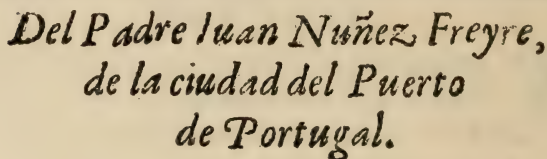 Del Padre Iuan Nuñez Freyre,
de la ciudad del Puerto
de Portugal.